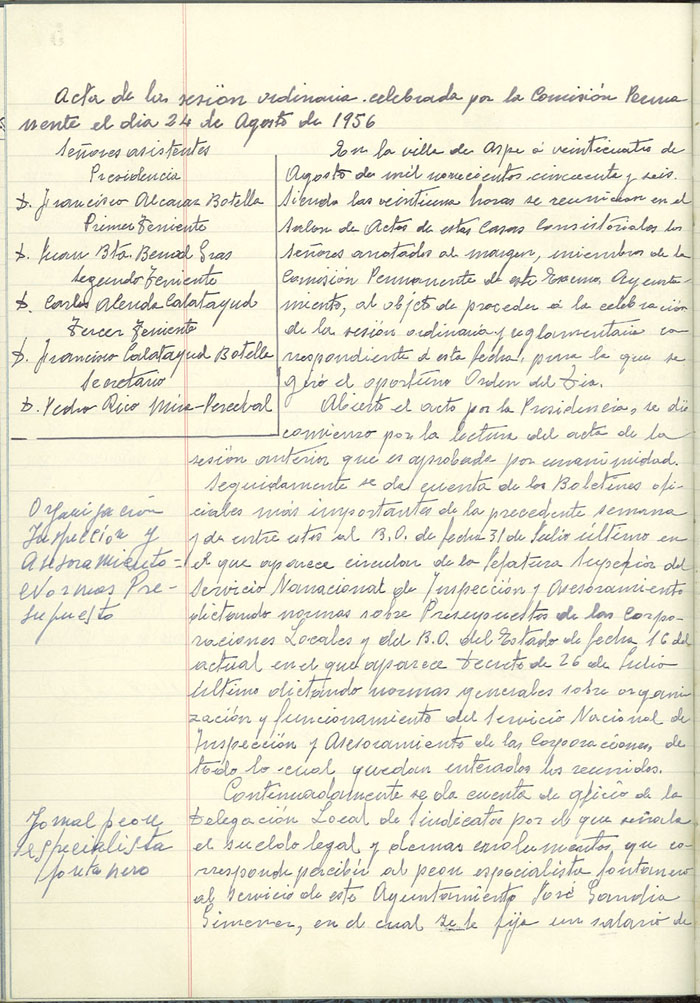 Acta de la sesión ordinaria celebrada por la Comisión Perma
nente el dia 24 de Agosto de 1956
Señores asistentes
Presidencia
D. Francisco Alcaraz Botella
Primer Teniente
D. Juan Bta. Bernal Gras
Segundo Teniente
D. Carlos Alenda Calatayud
Tercer Teniente
D. Francisco Calatayud Botella
Secretario
D. Pedro Rico Mira-Perceval
En la villa de Aspe a veinticuatro de
Agosto de mil novecientos cincuenta y seis.
Siendo las veintiuna horas se reunieron en el
Salon de Actos de estas Casas Consistoriales los
Señores anotados al margen, miembros de la
Comisión Permanente de este Excmo. Ayunta-
miento, al objeto de proceder a la celebración
de la sesión ordinaria y reglamentaria co-
rrespondiente a esta fecha, para la que se
giró el oportuno Orden del Dia.
Abierto el acto por la Presidencia, se dió
comienzo por la lectura del acta de la
sesión anterior que es aprobada por unanimidad.
Organización
Inspección y
Asesoramiento=
Normas Pre-
supuesto
Seguidamente se da cuenta de los Boletines ofi-
ciales más importantes de la precedente semana
y de entre estos al B.O. de fecha 31 de Julio último en
el que aparece circular de la Jefatura Superior del
Servicio Nanacional de Inspección y Asesoramiento
dictando normas sobre Presupuestos de las Corpo-
raciones Locales y del B.O. del Estado de fecha 16 del
actual en el que aparece Decreto de 26 de Julio
último dictando normas generales sobre organi-
zación y funcionamiento del Servicio Nacional de
Inspección y Asesoramiento de las Corporaciones, de
todo lo cual quedan enterados los reunidos.
Jornal peon
especialista
fontanero
Continuadamente se da cuenta de oficio de la
Delegación Local de Sindicatos por el que señala
el sueldo legal y demas emolumentos, que co-
rresponde percibir al peon especialista fontanero
al servicio de este Ayuntamiento José Gandia
Gimenez, en el cual se le fija un salario de